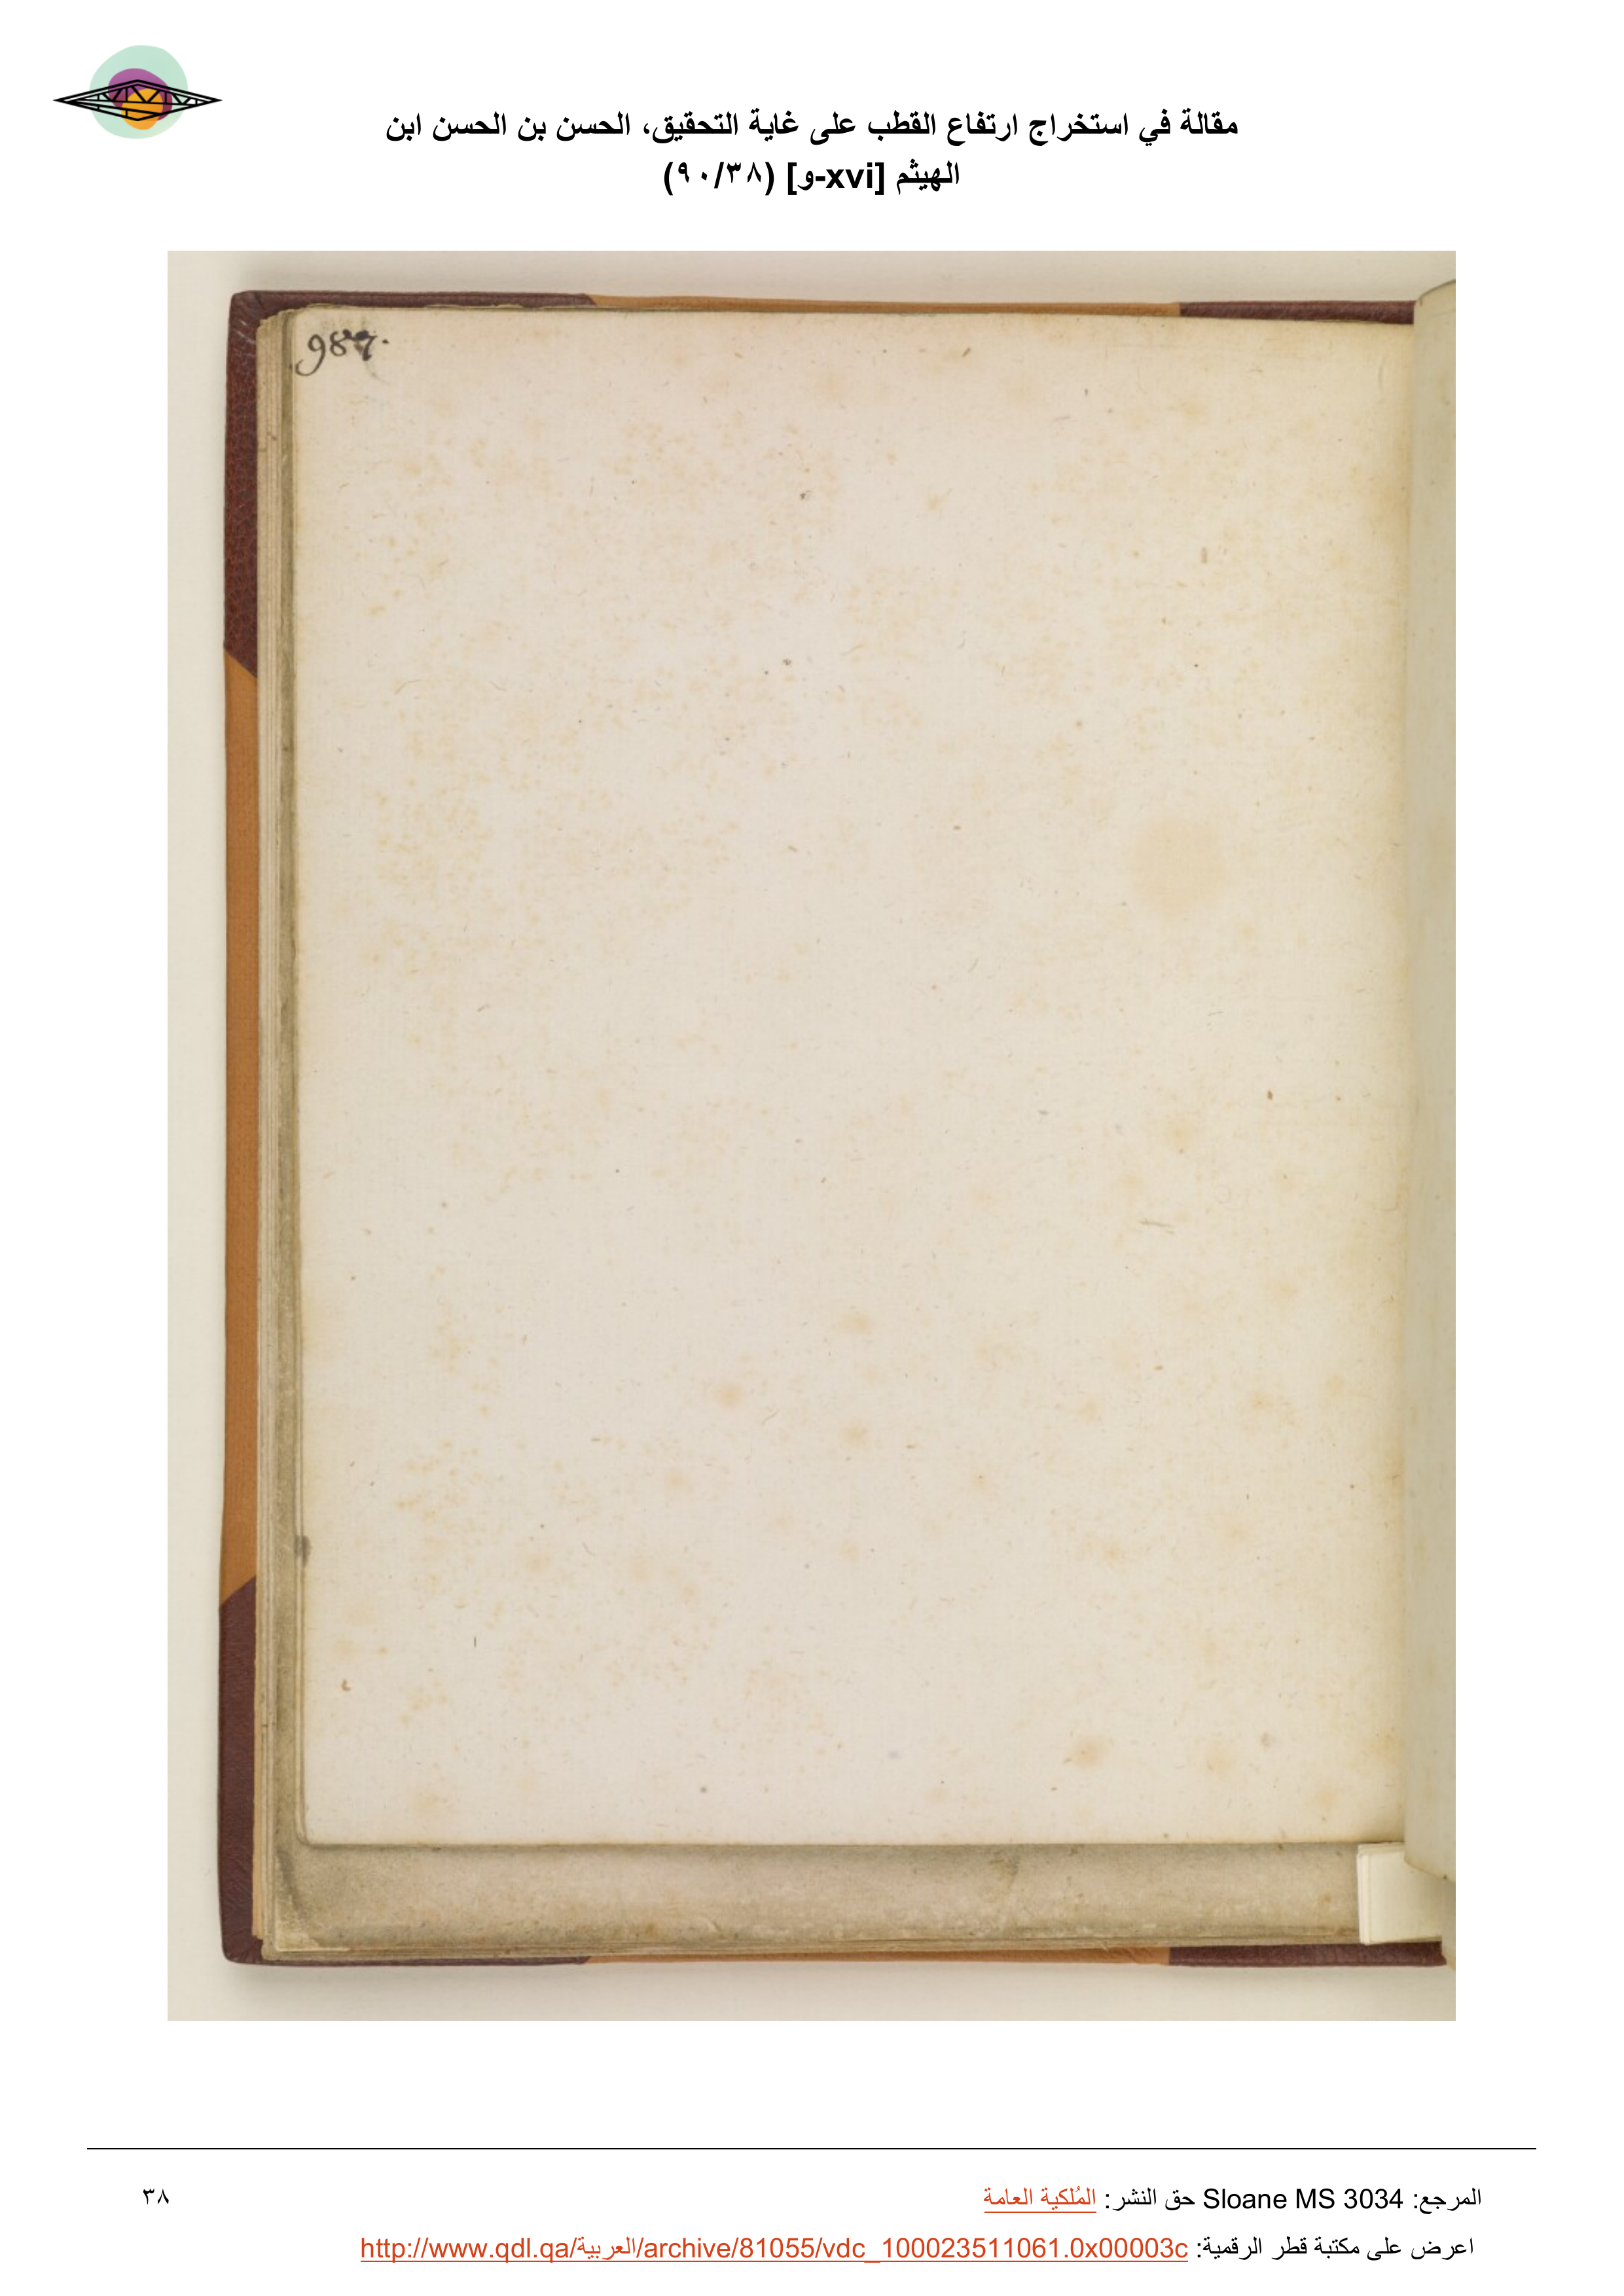 مقالة في استخراج ارتفاع القطب على غاية التحقيق، الحسن بن الحسن ابن
الهيثم [xvi-و] (٩٠/٣٨)
987.
المرجع: Sloane MS 3034 حق النشر: المُلكية العامة
٣٨
اعرض على مكتبة قطر الرقمية: http://www.qdl.qa/العربية/archive/81055/vdc_100023511061.0x00003c